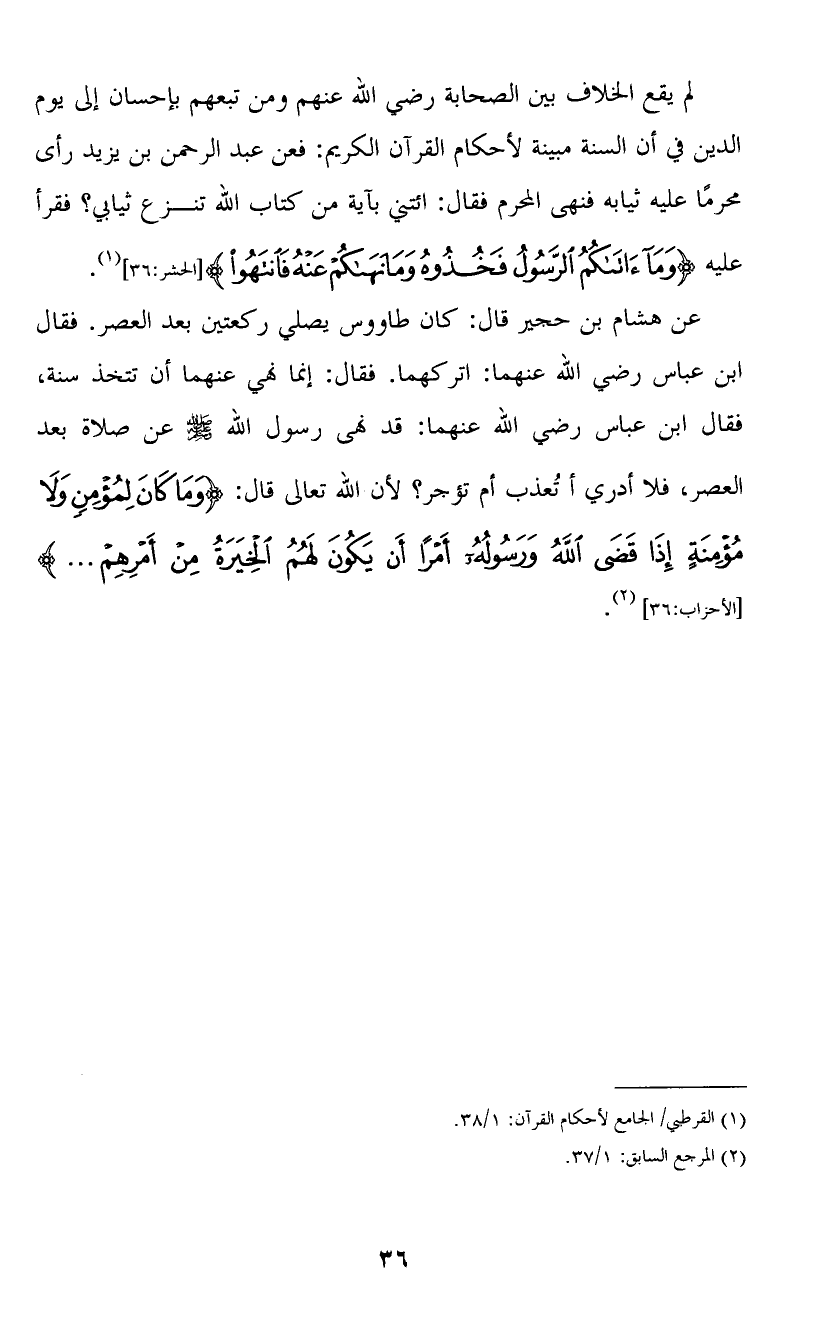 لم يقع الخلاف بين الصحابة رضي الله عنهم ومن تبعهم بإحسان إلى يوم
الدين في أن السنة مبينة لأحكام القرآن الكريم: فعن عبد الرحمن بن يزيد رأى
محرمًا عليه ثيابه فنهى المحرم فقال: ائتني بآية من كتاب الله تنـــزع ثيابي؟ فقرأ
عليه ﴿وَمَآ ءَاتَىٰكُمُ ٱلرَّسُولُ فَخُـــذُوهُ وَمَا نَهَىٰكُمْ عَنْهُ فَٱنتَهُوا۟ ﴾[الحشر:٣٦](١).
عن هشام بن حجير قال: كان طاووس يصلي ركعتين بعد العصر. فقال
ابن عباس رضي الله عنهما: اتركهما. فقال: إنما نهي عنهما أن تتخذ سنة،
فقال ابن عباس رضي الله عنهما: قد نهى رسول الله ﷺ عن صلاة بعد
العصر، فلا أدري أ تُعذب أم تؤجر؟ لأن الله تعالى قال: ﴿وَمَا كَانَ لِمُؤْمِنٍ وَلَا
مُؤْمِنَةٍ إِذَا قَضَى ٱللَّهُ وَرَسُولُهُۥٓ أَمْرًا أَن يَكُونَ لَهُمُ ٱلْخِيَرَةُ مِنْ أَمْرِهِمْ ... ﴾
[الأحزاب:٣٦] (٢).
(١) القرطبي/ الجامع لأحكام القرآن: ٣٨/١.
(٢) المرجع السابق: ٣٧/١.
٣٦